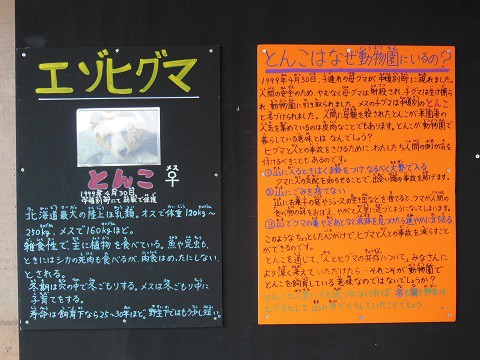 エゾヒグマ
とんこ ♀ メス
1999年4月30日
中頓別町にて捕獲で保護
北海道最大の陸上ほ乳類。オスで体重120kg〜
250kg。メスで160kgほど。
雑食性で、主に植物を食べている。魚や昆虫、
ときにはシカの死肉も食べるが、肉食はめったにしない
とされる。
冬期は穴の中で冬ごもりする。メスは冬ごもり中に
子育てをする。
寿命は飼育下なら25〜30年ほど。野生下ではもう少し短い。
とんこはなぜ動物園にいるの？
1999年4月30日、子連れの母グマが中頓別町に現れました。
人間の安全のため、やむなく母グマは射殺され、子グマは生け捕り
され動物園に引き取られました。メスの子グマは中頓別のとんこ
と名づけられました。人間に母親を殺されたとんこが来園者の
人気を集めているのは皮肉なことでもあります。とんこが動物園で
暮らしている意味とは なんでしょう？
ヒグマと人との事故をさけるために、わたしたち人間の側が気を
付けるべきこともあるのです。
①山に入るときはよく鈴をつけるなるべく大勢で入る
②山にごみを捨てない
③山でクマの糞や足あとなど痕跡を見つけたら速やかに立ち去る
このようなちょっとした心がけで、ヒグマと人との事故を減らすことが
できるのです。
とんこを通じて、"人とヒグマの共存について"、みなさんに
より深く考えていただけたら…それこそが動物園で
とんこを飼育している意味なのではないでしょうか？